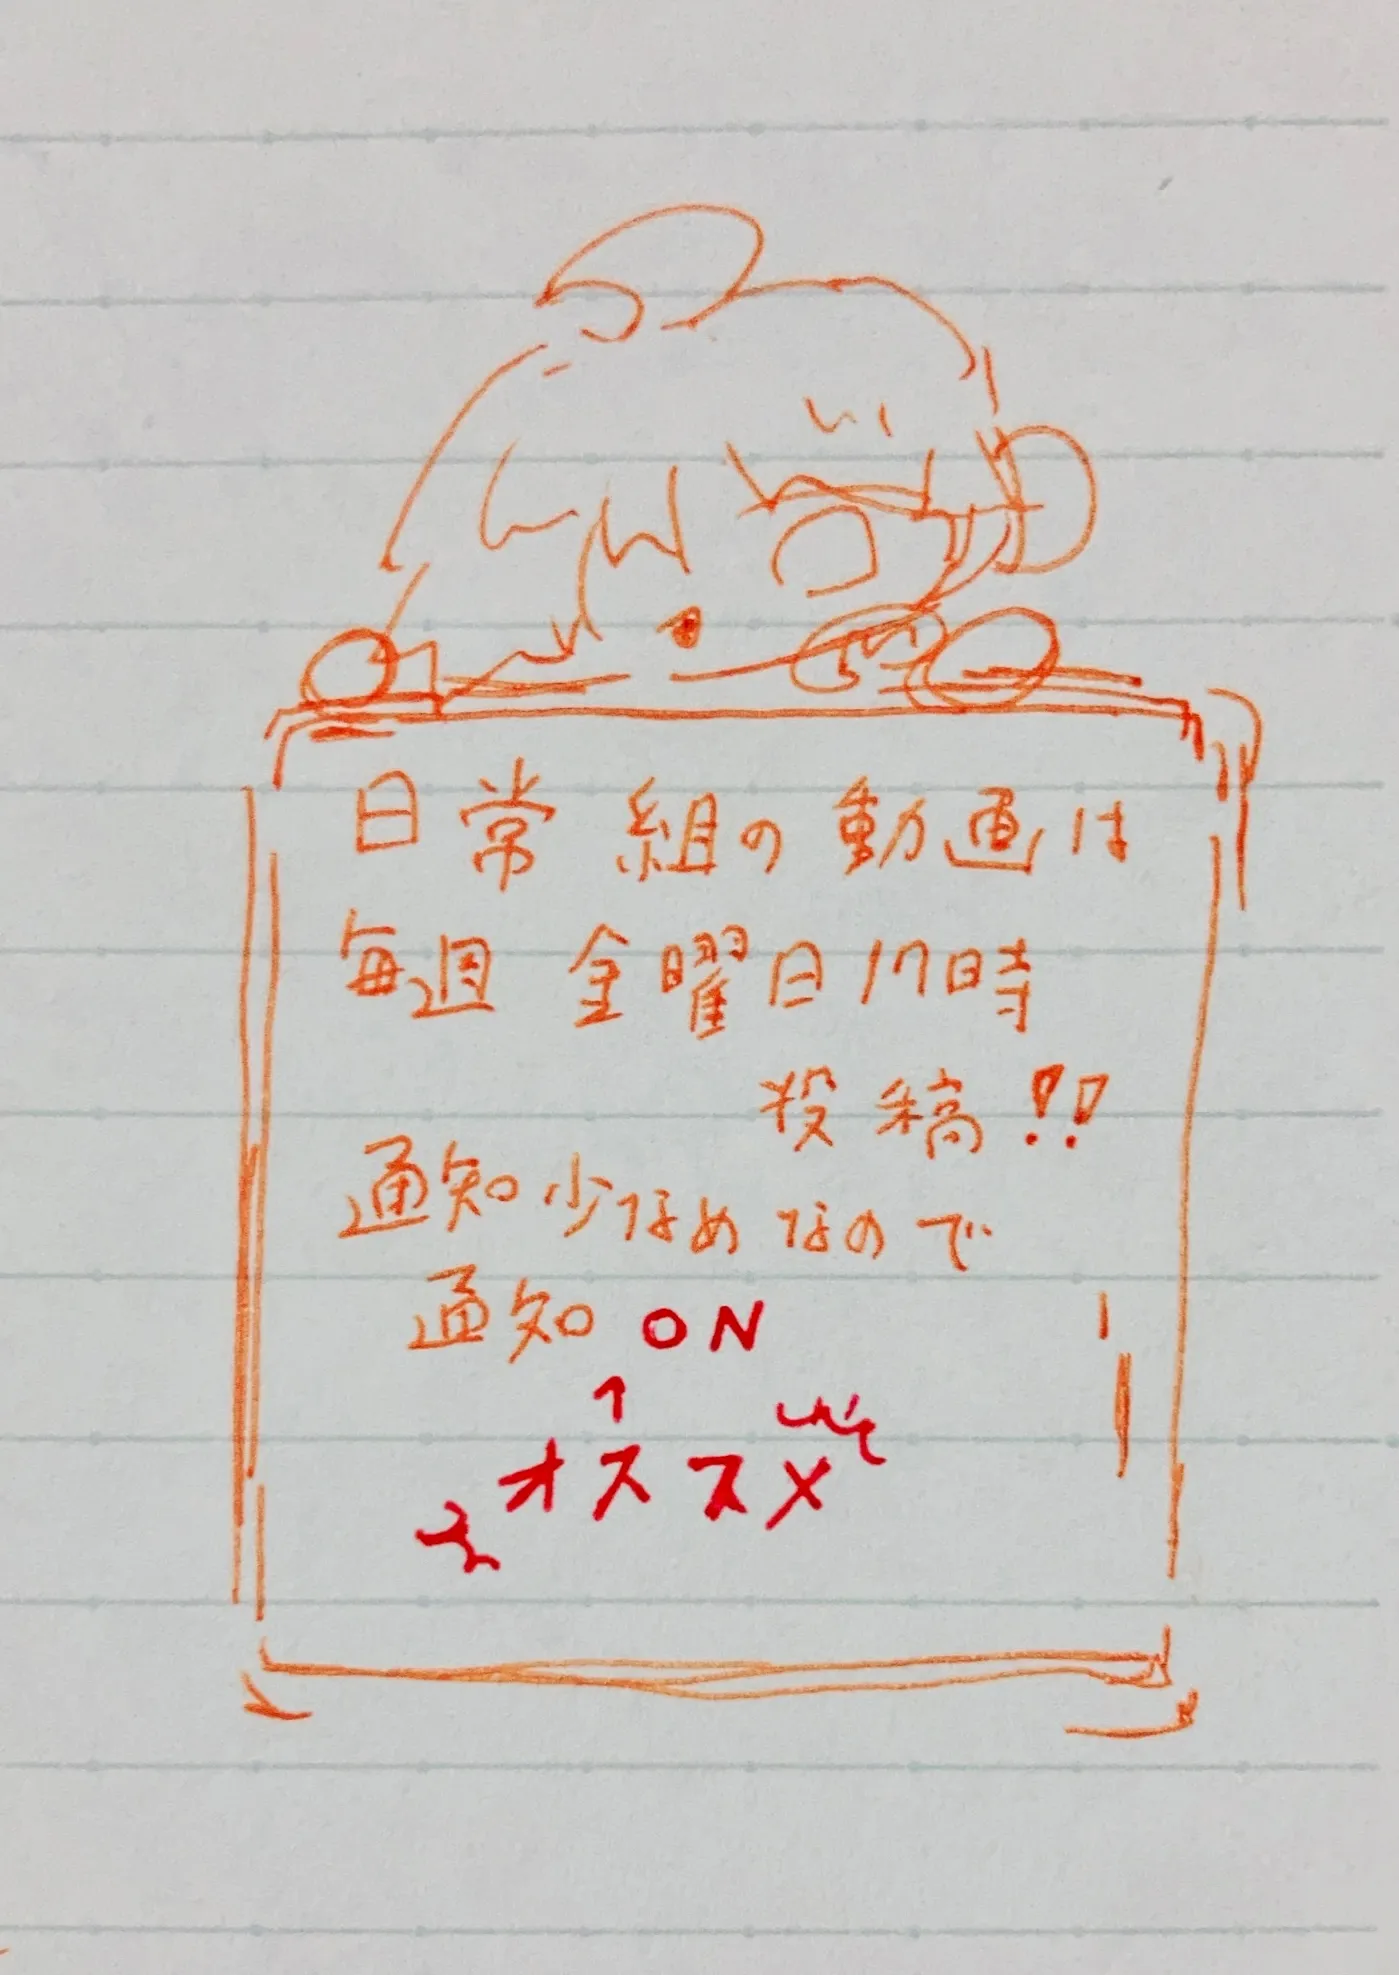 日常組の動画は
毎週金曜日17時
投稿!!
通知少なめなので
通知ON
↑
オススメ